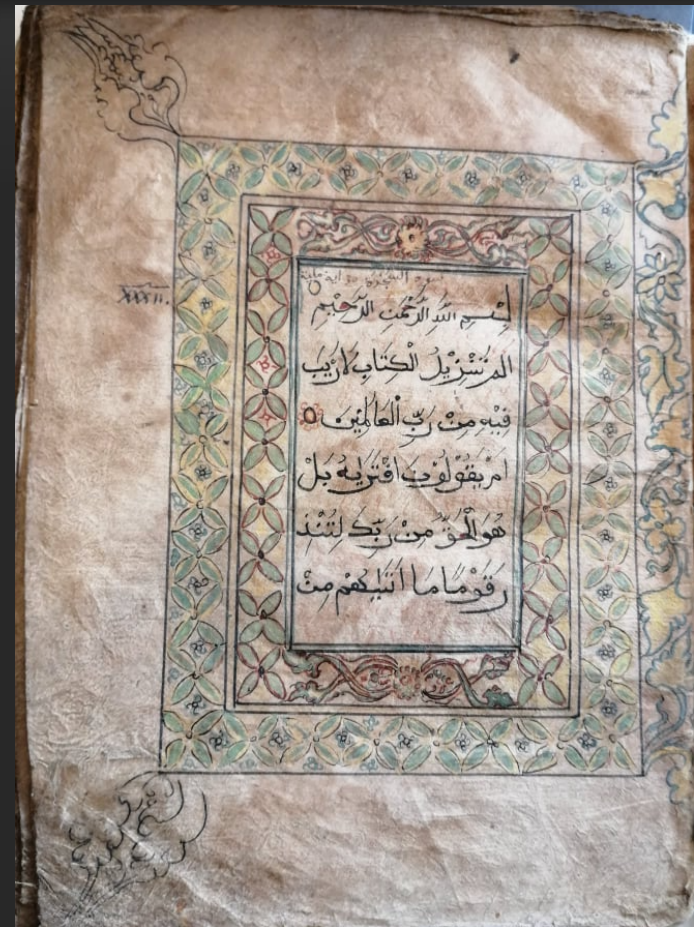 السجدة اية مكية
XXXII.
بِسْمِ اللّٰهِ الرَّحْمٰنِ الرَّحِيْمِ
الم تَنْزِيْلُ الْكِتَابِ لَا رَيْبَ
فِيْهِ مِنْ رَبِّ الْعَالَمِيْنَ
اَمْ يَقُوْلُوْنَ افْتَرٰيهُ بَلْ
هُوَ الْحَقُّ مِنْ رَبِّكَ لِتُنْذِ
رَ قَوْمًا مَا اَتٰيهُمْ مِنْ